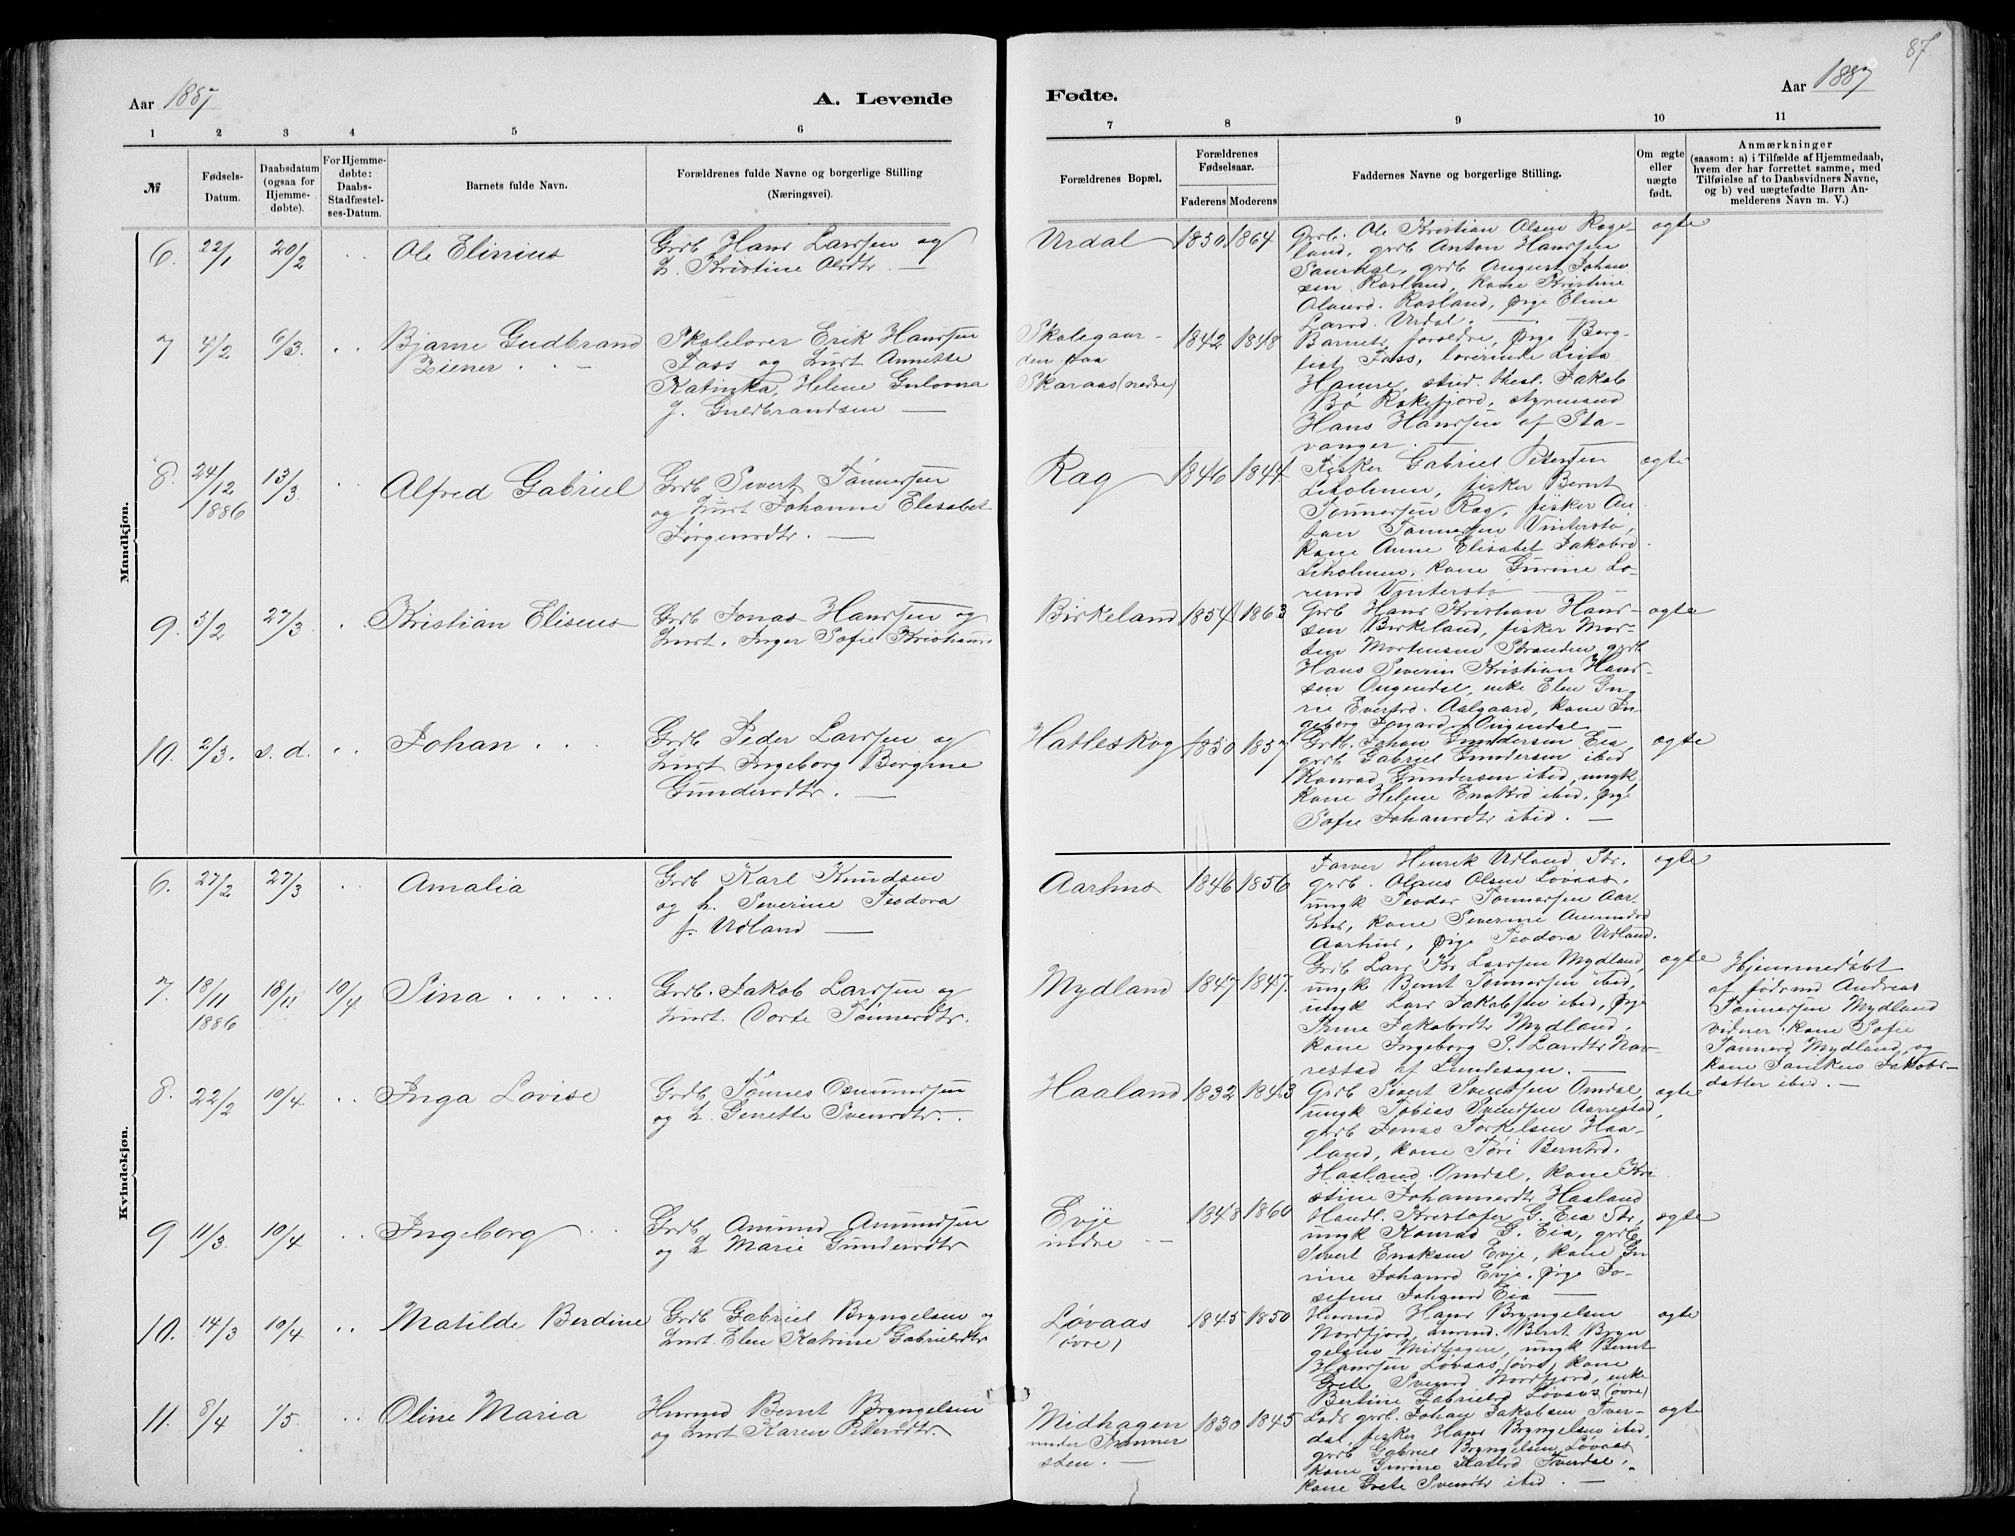 87
Aar 1887
A. Levende
Fødte.
Aar 1887
1 2 3 4 5 6 7 8 9 10 11
№
Fødsels-
Datum.
Daabsdatum
(ogsaa for
Hjemme-
døbte).
For Hjemme-
døbte:
Daabs-
Stadfæstel-
ses-Datum.
Barnets fulde Navn.
Forældrenes fulde Navne og borgerlige Stilling
(Næringsvei).
Forældrenes Bopæl.
Forældrenes
Fødselsaar.
Faderens Moderens
Faddernes Navne og borgerlige Stilling.
Om ægte
eller
uægte
født.
Anmærkninger
(saasom: a) i Tilfælde af Hjemmedaab,
hvem der har forrettet samme, med
Tilføielse af to Daabsvidners Navne,
og b) ved uægtefødte Børn An-
melderens Navn m. V.)
Mandkjøn.
6. 22/1 20/2 Ole Elinius
Grdb Hans Larssen og
h. Kristine Olsdtr. —
Urdal 1850 1864
Grdb. Ole Kristian Olsen Rage-
land, grdb Anton Hanssen
Samdal, grdb August Johan
sen Rosland, kone Kristine
Olausd. Rosland, pige Eline
Larsd. Urdal. —
ægte
7 4/2 6/3. Bjarne Gudbrand
Ziener
Skolelærer Erik Hanssen
Foss og hust Annette
Katinka, Helene Gulovna
f. Guldbrandsen —
Skolegaar-
den paa
Skaraas (nedre)
1842 1848
Barnets forældre, pige Berg-
liot Foss, lærerinde Lina
Hamre, stud. theol. Jakob
Bø Rekefjord, styrmand
Hans Hanssen af Sta-
vanger. —
8. 24/12 1886 13/3 Alfred Gabriel
Grdb Sivert Tønnessen
og hust Johanne Elisabet
Jørgensdtr. —
Rag 1846 1844
Fisker Gabriel Petersen
Liholmen, fisker Bernt
Tønnessen Rag, fisker An-
ton Tønnessen Vinterstø,
kone Anne Elisabet Jakobsd
Liholmen, kone Gurine Lo-
rensd Vinterstø
ægte
9. 5/2 27/3. Kristian Eliseus
Grdb Jonas Hanssen og
hust. Inger Sofie Kristians
Birkeland 1854 1863
Grdb Hans Kristian Hans-
sen Birkeland, fisker Mor-
ten Mortensen Stranden, grdb
Hans Severin Kristian Hans-
sen Ougendal, enke Elen Gu-
rie Evertsd. Aalgaard, kone In
geborg Jonasd Ougendal —
ægte
10. 2/3. s. d. Johan
Grdb Peder Larssen og
hust Ingeborg Bergine
Gundersdtr. —
Hatleskog 1850 1857
Grdb. Johan Gundersen Eia,
grdb Gabriel Gundersen ibid
Konrad Gundersen ibid, ungk.
kone Helene Enoksd ibid, pige
Sofie Johansdtr ibid. —
ægte
Kvindekjøn.
6. 27/2 27/3 Amalia
Grdb Karl Knudsen
og h. Severine Teodora
f. Udland —
Aarhus 1846 1856
Farver Henrik Udland Str.
grdb. Olaus Olsen Løvaas,
ungk Teodor Tønnessen Aar-
hus, kone Severine Amundsd
Aarhus, pige Teodora Udland.
ægte
7. 18/11 1886 18/11 10/4 Sina
Grdb. Jakob Larssen og
hust. Dorte Tønnesdtr.
Mydland 1847 1847.
Grdb Lars Kr Larssen Mydland,
ungk Bernt Tønnessen ibid,
ungk Lars Jakobsen ibid, pige
Trine Jakobsdtr Mydland,
kone Ingeborg S. Larsdtr Nav-
restad af Lundesogn. —
ægte
Hjemmedøbt
af fødemd Andreas
Tønnessen Mydland
vidner: kone Sofie
Tønnesd Mydland og
kone Tomken Jakobs-
datter ibid. —
8. 22/2 10/4 Inga Lovise
Grdb Tønnes Osmundsen
og h. Genette Svensdtr. —
Haaland 1832 1843
Grdb Sivert Svendsen Omdal,
ungk Tobias Svendsen Aarrestad,
grdb Jonas Torkelsen Haa-
land, kone Tori Berntsd.
Haaland Omdal, kone Kri
stine Johannesdtr Haaland
ægte
9 11/3. 10/4 Ingeborg
Grdb. Amund Amundsen
og h Marie Gundersdtr
Evje
indre —
1848 1860
Handl. Kristofer G. Eia Str,
ungk Konrad G. Eia, grdb
Sivert Enoksen Evje, kone Gu
rine Johansd Evje, pige Jo-
sefine Johansd Eia —
ægte
10. 14/3 10/4 Matilde Berdine
Grdb Gabriel Bryngelsen og
hust. Elen Katrine Gabrielsdtr
Løvaas
(øvre)
1845 1850
Husmd Hans Bryngelsen
Nordfjord, husmd. Bernt Bryn
gelsen Midhagen, ungk Bernt
Hanssen Løvaas (øvre), kone
Grete Svensd Nordfjord, enke
Bertine Gabrielsd Løvaas (øvre)
ægte
11. 8/4 1/5. Oline Maria
Husmd Bernt Bryngelsen
og hust Karen Pedersdtr.
Midhagen
under Tømmer
sten. —
1830 1845
Lods grdb. Johan Jakobsen Tver-
dal, fisker Hans Bryngelsen ibid,
grdb Gabriel Bryngelsen Løvaas
kone Gurine Matsd Tverdal,
kone Grete Svensdtr ibid. —
ægte